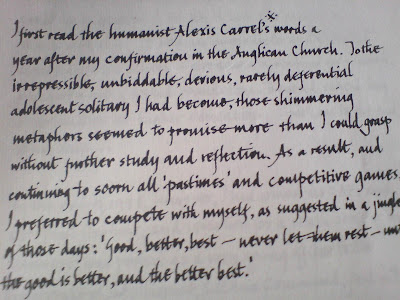 I first read the humanist Alexis Carrel's* words a
year after my confirmation in the Anglican Church. To the
irrepressible, unbiddable, devious, rarely deferential
adolescent solitary I had become, those shimmering
metaphors seemed to promise more than I could grasp
without further study and reflection. As a result, and
continuing to scorn all 'pastimes' and competitive games,
I preferred to compete with myself, as suggested in a jingle
of those days: 'Good, better, best — never let them rest —
the good is better, and the better best.'